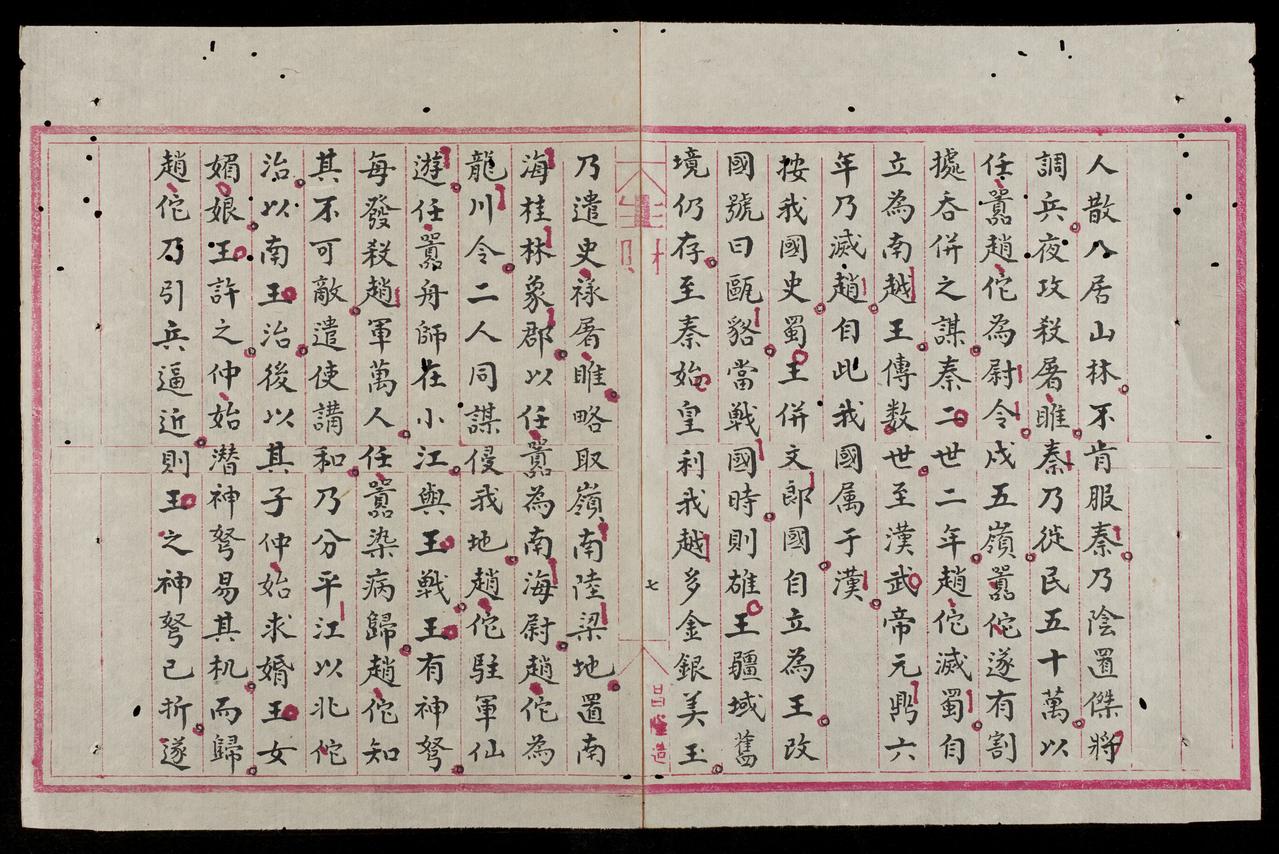 人散入居山林不肯服秦乃陰置傑將
調兵夜攻殺屠睢秦乃徙民五十萬以
任囂趙佗為尉令戍五嶺囂佗遂有割
據吞併之謀秦二世二年趙佗滅蜀自
立為南越王傳数世至漢武帝元鼎六
年乃滅趙自此我國属于漢
按我國史蜀王併文郎國自立為王改
國號曰甌貉當戦國時則雄王疆域舊
境仍存至秦始皇利我越多金銀美玉
七
乃遣史祿屠睢略取嶺南陸梁地置南
海桂林象郡以任囂為南海尉趙佗為
龍川令二人同謀侵我地趙佗駐軍仙
遊任囂舟師在小江與王戦王有神弩
每發殺趙軍萬人任囂染病歸趙佗知
其不可敵遣使講和乃分平江以北佗
治以南王治後以其子仲始求婚王女
媚娘王許之仲始潜神弩易其机而歸
趙佗乃引兵逼近則王之神弩已折遂